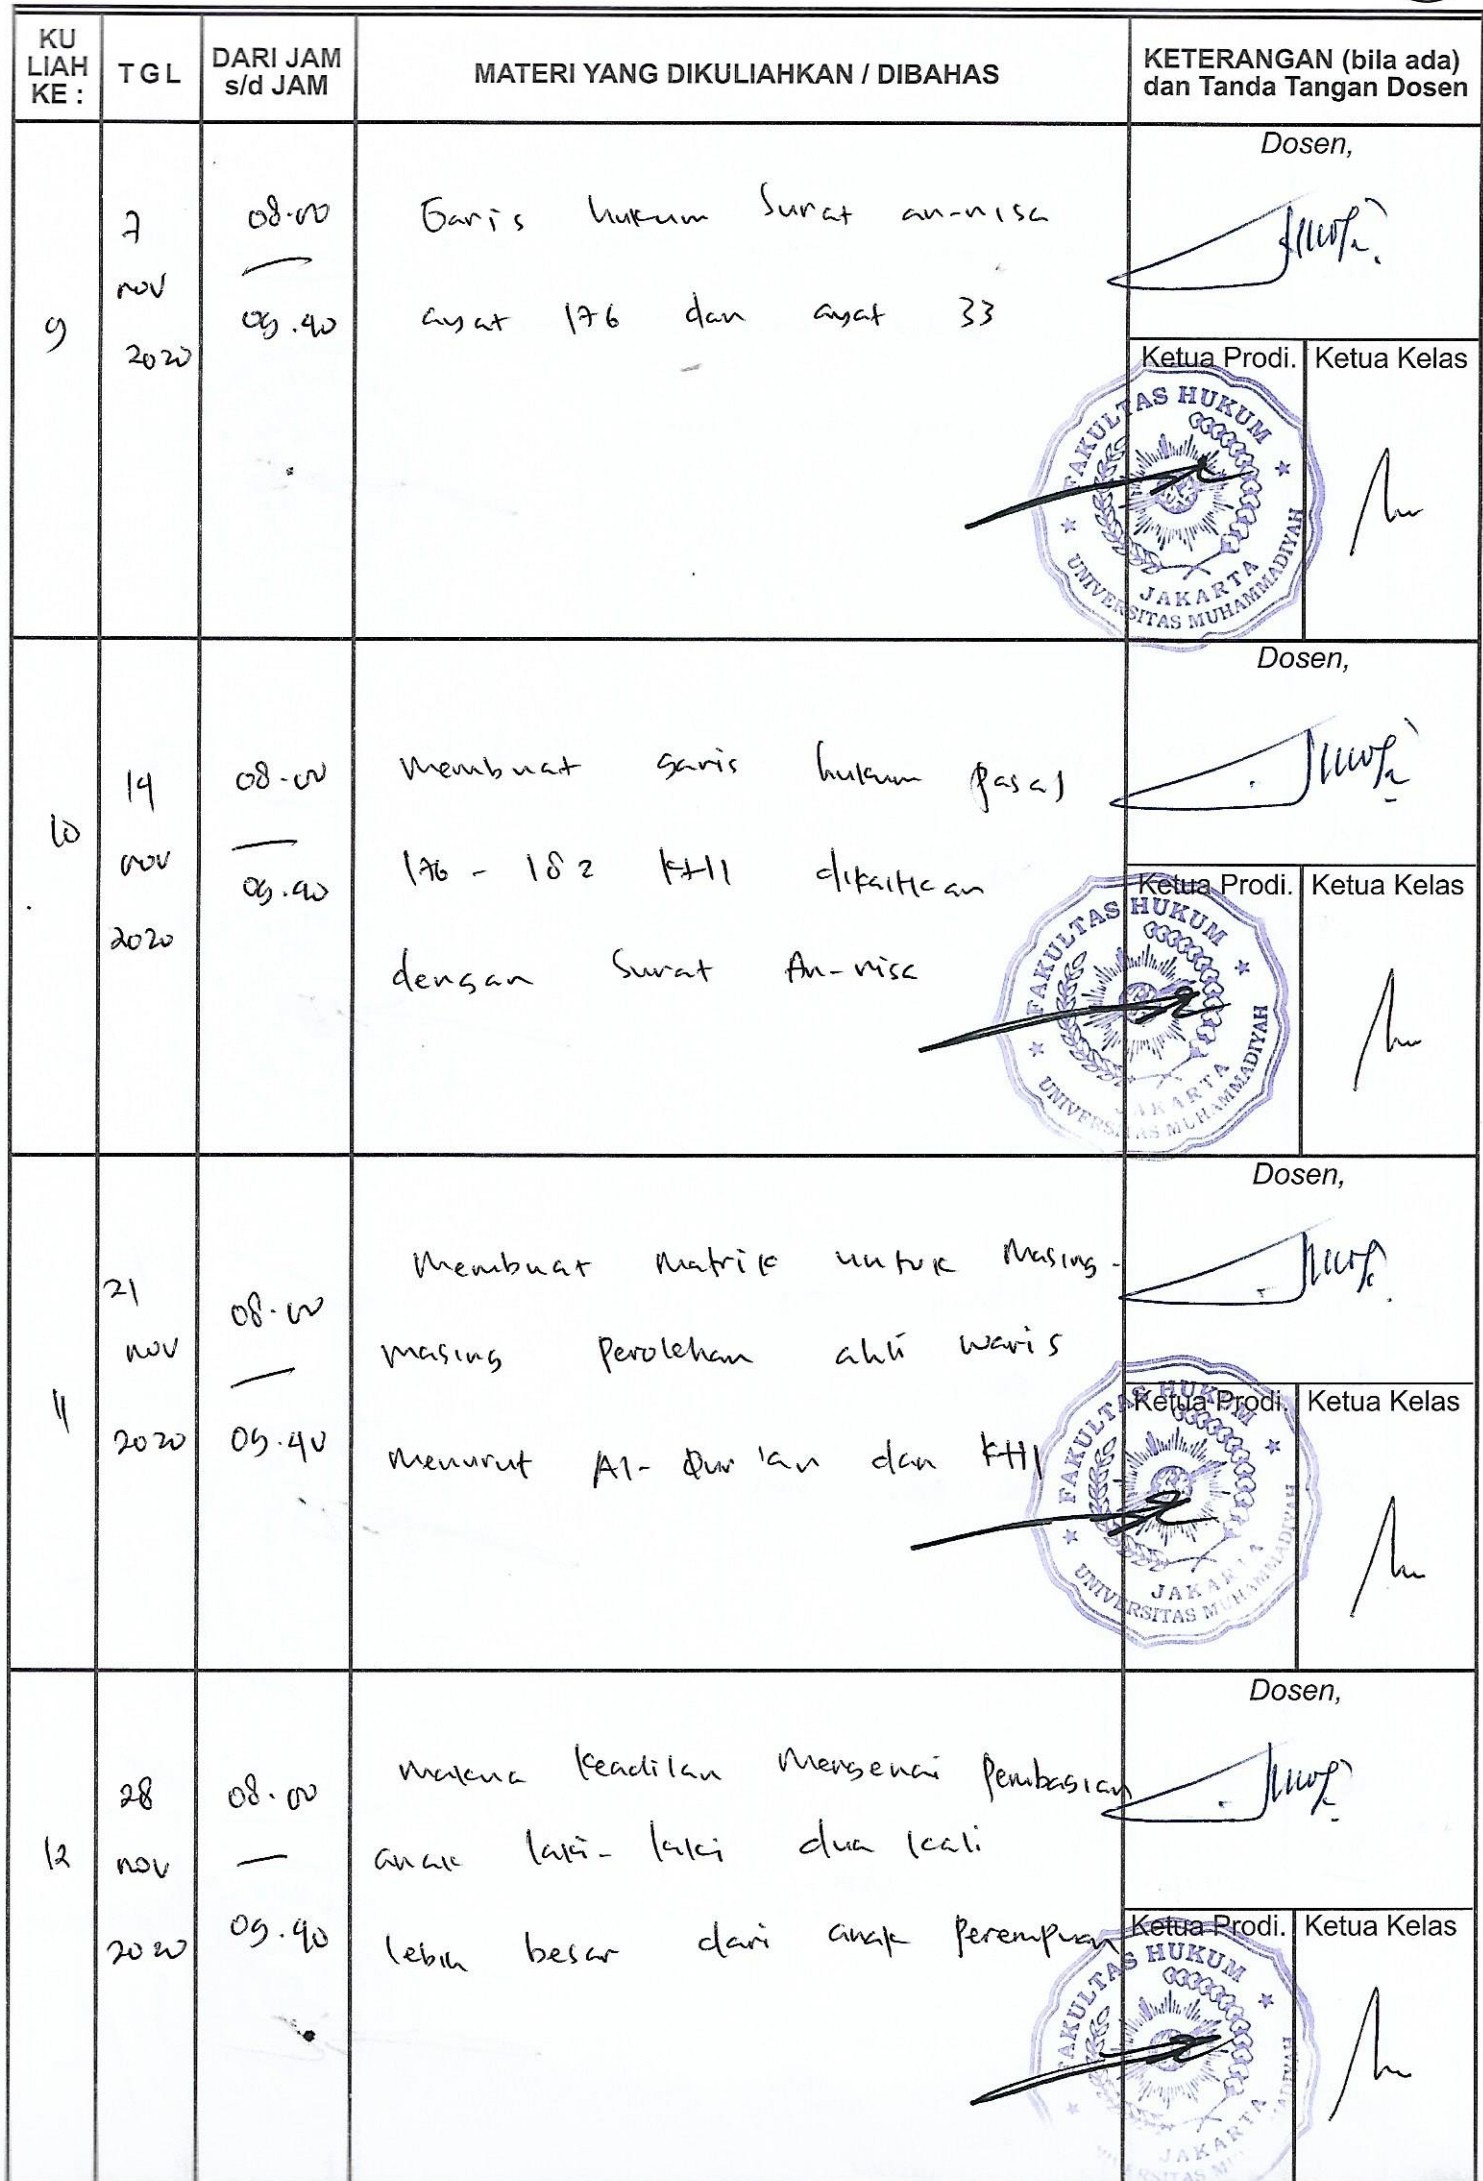 KU
LIAH
KE :
TGL
DARI JAM
s/d JAM
MATERI YANG DIKULIAHKAN / DIBAHAS
KETERANGAN (bila ada)
dan Tanda Tangan Dosen
9
7
nov
2020
08.00
—
09.40
Garis hukum Surat an-nisa
ayat 176 dan ayat 33
Dosen,
Ketua Prodi.
Ketua Kelas
FAKULTAS HUKUM
JAKARTA
UNIVERSITAS MUHAMMADIYAH
10
14
nov
2020
08.00
—
09.40
Membuat garis hukum pasal
176 - 182 KHI dikaitkan
dengan Surat An-nisa
Dosen,
Ketua Prodi.
Ketua Kelas
FAKULTAS HUKUM
JAKARTA
UNIVERSITAS MUHAMMADIYAH
11
21
nov
2020
08.00
—
09.40
Membuat Matrik untuk Masing-
masing Perolehan ahli waris
menurut Al-Qur'an dan KHI
Dosen,
Ketua Prodi.
Ketua Kelas
FAKULTAS HUKUM
JAKARTA
UNIVERSITAS MUHAMMADIYAH
12
28
nov
2020
08.00
—
09.40
Makna Keadilan Mengenai Pembagian
anak laki-laki dua kali
lebih besar dari anak Perempuan
Dosen,
Ketua Prodi.
Ketua Kelas
FAKULTAS HUKUM
JAKARTA